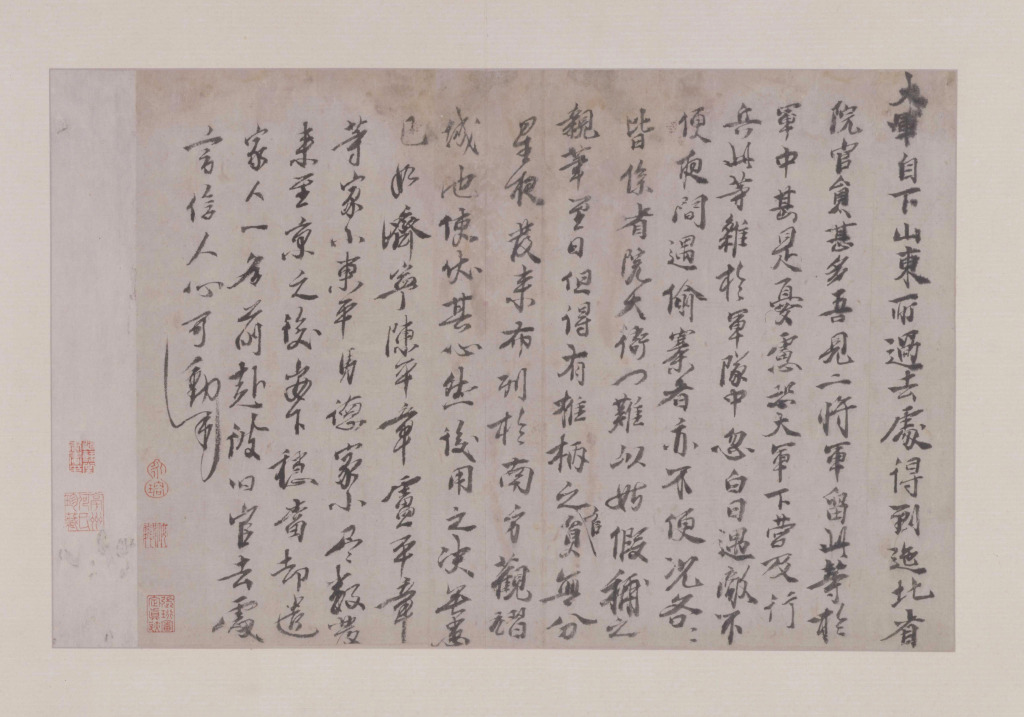 大軍自下山東所過去處得到迤北省
院官員甚多吾見二將軍留此等於
軍中甚是憂慮恐大軍下營及行
兵此等雜於軍隊中忽白日遇敵不
便夜間遇偷寨者亦不便況各〻
皆係省院大衙門難以姑假補之
親筆至日但得有權柄之官員無分
星夜發來布列於南方觀
城池使伏其心然後用之決無患
已如濟寧陳平章盧平章
等家小東平馬德家小尽数發
来至京之後安下穩當却遣
家人一名前赴彼旧官去處
言信人心可動